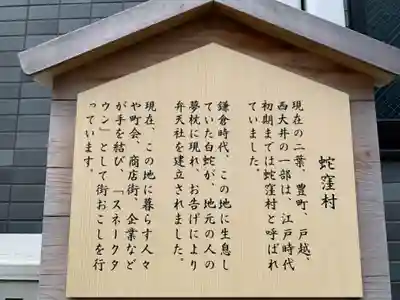 蛇窪村
現在の二葉、豊町、戸越、
西大井の一部は、江戸時代
初期までは蛇窪村と呼ばれ
ていました。
鎌倉時代、この地に生息し
ていた白蛇が、地元の人の
夢枕に現れ、お告げにより
弁天社を建立されました。
現在、この地に暮らす人々
や町会、商店街、企業など
が手を結び、「スネークタ
ウン』として街おこしを行
っています。